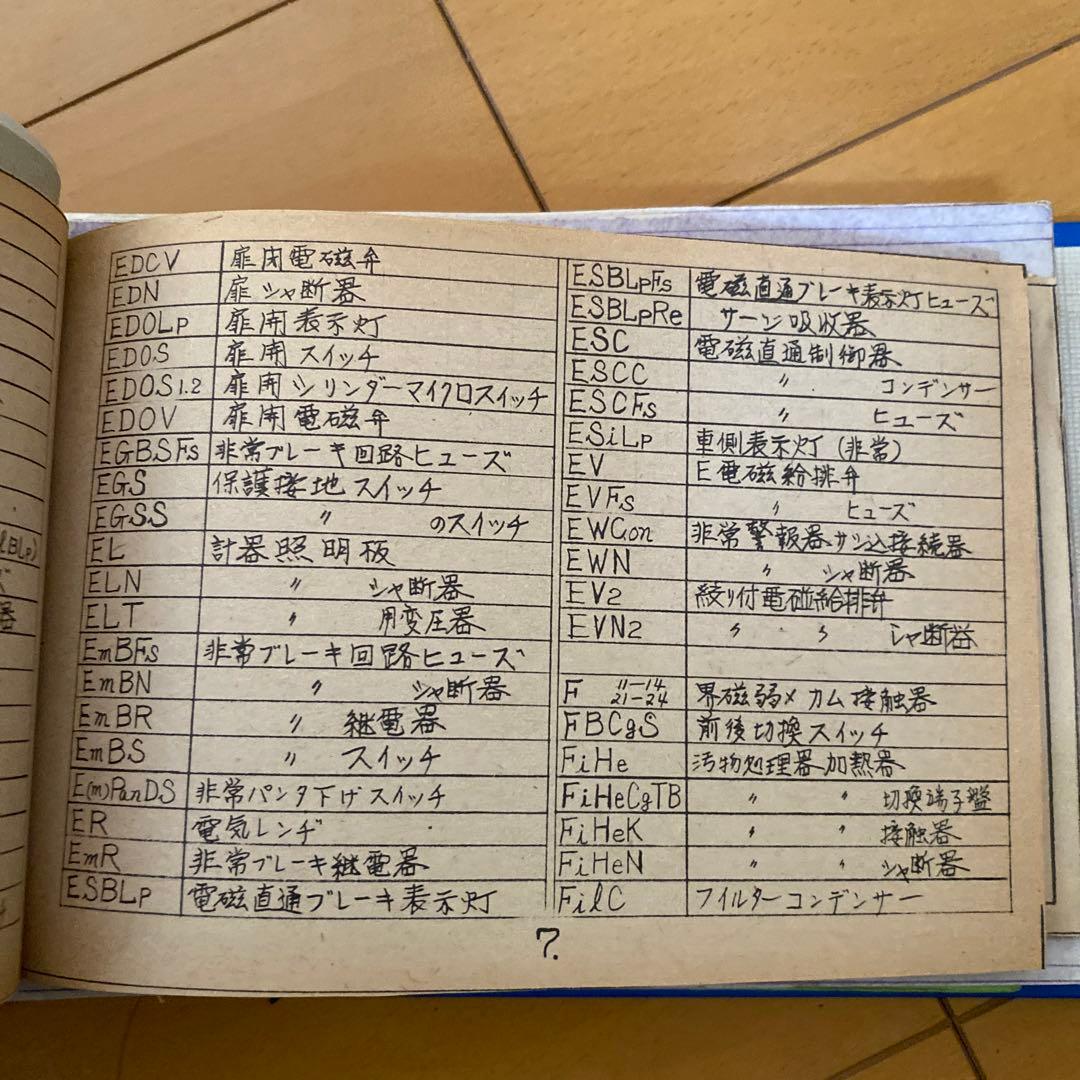 EDCV 扉閉電磁弁
EDN 扉シャ断器
EDOLp 扉開表示灯
EDOS 扉開スイッチ
EDOS1.2 扉開シリンダーマイクロスイッチ
EDOV 扉開電磁弁
EGBSFs 非常ブレーキ回路ヒューズ
EGS 保護接地スイッチ
EGSS 〃 のスイッチ
EL 計器照明板
ELN 〃 シャ断器
ELT 〃 用変圧器
EmBFs 非常ブレーキ回路ヒューズ
EmBN 〃 シャ断器
EmBR 〃 継電器
EmBS 〃 スイッチ
E(m)PanDS 非常パンタ下げスイッチ
ER 電気レンヂ
EmR 非常ブレーキ継電器
ESBLp 電磁直通ブレーキ表示灯
ESBLpFs 電磁直通ブレーキ表示灯ヒューズ
ESBLpRe サージ吸收器
ESC 電磁直通制御器
ESCC 〃 コンデンサー
ESCFs 〃 ヒューズ
ESiLp 車側表示灯(非常)
EV E電磁給排弁
EVFs 〃 ヒューズ
EWCon 非常警報器サシ込接続器
EWN 〃 シャ断器
EV2 絞り付電磁給排弁
EVN2 〃 〃 シャ断器
F 11-14 21-24 界磁弱メカム接触器
FBCgS 前後切換スイッチ
FiHe 汚物処理器加熱器
FiHeCgTB 〃 〃 切換端子盤
FiHeK 〃 〃 接触器
FiHeN 〃 〃 シャ断器
FilC フイルターコンデンサー
7.